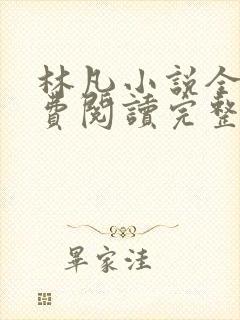 林凡小說全
費閱讀完整
畢家洼